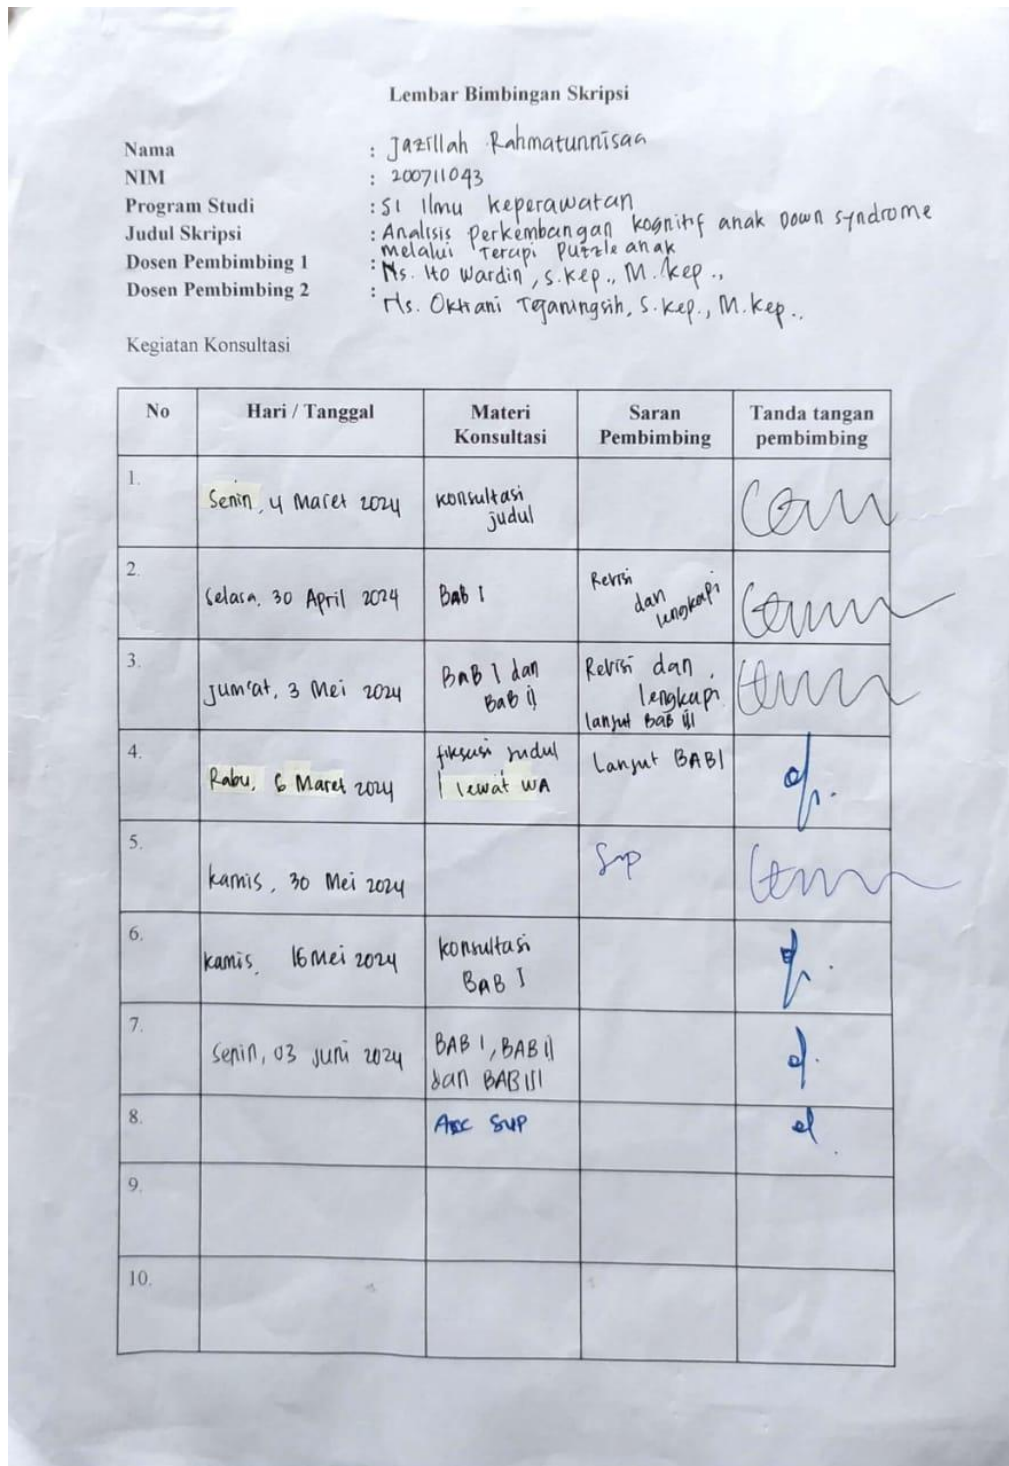 Lembar Bimbingan Skripsi
Nama : Jazillah Rahmatunnisaa
NIM : 200711043
Program Studi : S1 Ilmu keperawatan
Judul Skripsi : Analisis Perkembangan kognitif anak Down syndrome
melalui Terapi Puzzle anak
Dosen Pembimbing 1 : Ns. Ito Wardin, S.kep., M.kep.,
Dosen Pembimbing 2 : Ns. Oktiani Tejaningsih, S.kep., M.kep.,
Kegiatan Konsultasi
No Hari / Tanggal Materi Konsultasi Saran Pembimbing Tanda tangan pembimbing
1. Senin, 4 Maret 2024 konsultasi judul
2. Selasa, 30 April 2024 Bab I Revisi dan lengkapi
3. Jum'at, 3 Mei 2024 BAB I dan Bab II Revisi dan lengkapi lanjut BAB III
4. Rabu, 6 Maret 2024 fiksasi judul lewat WA Lanjut BAB I
5. kamis, 30 Mei 2024
6. kamis, 16 Mei 2024 konsultasi BAB I
7. Senin, 03 Juni 2024 BAB I, BAB II dan BAB III
8. Acc SUP
9.
10.